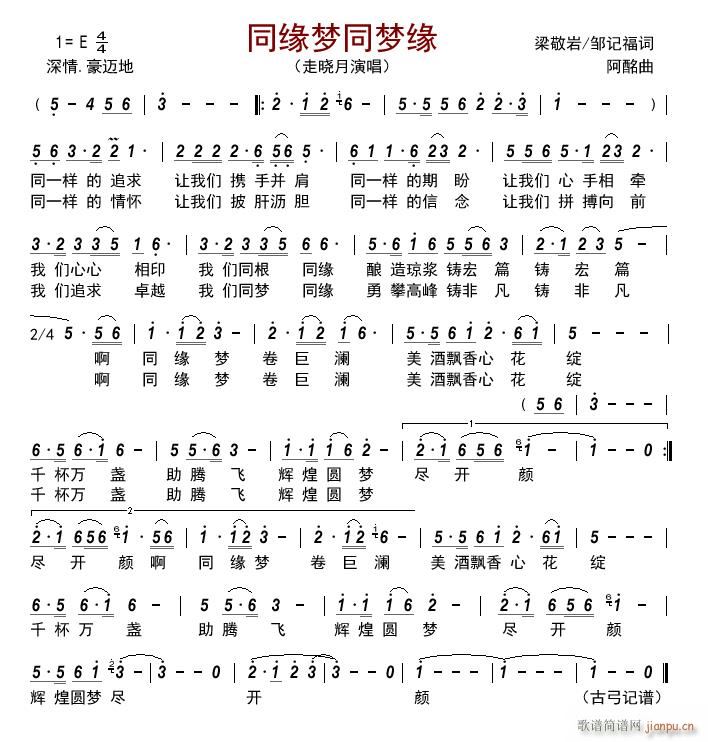 同缘梦同梦缘
1= E 4/4
梁敬岩/邹记福词
深情.豪迈地
（走晓月演唱）
阿酩曲
( 5 - 4 5 6 | 3 - - - ‖: 2 · 1 2 i | 5 · 5 5 6 2 2 · 3 | 1 - - - )|
5 6 3 · 2 2 1 · | 2 2 2 2 · 6 5 6 5 · | 6 1 1 1 · 6 2 3 2 | 5 5 6 5 · 1 2 3 3 |
同一样 的 追求 让我们 携 手并 肩 同一样的期 盼 让我们 心 手相 牵
同一样 的 情怀 让我们 披 肝沥 胆 同一样的信 念 让我们 拼 搏向 前
3 · 2 3 3 5 1 6 · | 3 · 2 3 3 5 5 3 | 2 · 3 5 6 1 6 5 5 5 6 3 | 2 · 1 2 3 5 3 - |
我 们心心 相印 我 们同根 同缘 酿 造琼浆 铸宏 篇 铸 宏 篇
我 们追求 卓越 我 们同梦 同缘 勇 攀高峰 铸非 凡 铸 非 凡
2/4 5 · 5 6 | 1 · 1 1 2 3 - | 2 · 1 2 1 6 - | 5 · 5 5 6 1 2 · 6 1 | 5 - - -
啊 同 缘 梦 卷 巨 澜 美 酒飘香心 花 绽
啊 同 缘 梦 卷 巨 澜 美 酒飘香心 花 绽
( 5 6 | 3 - - -
1
6 · 5 6 · 1 6 - | 5 5 · 6 3 - | 1 · 1 1 1 6 2 - | 2 · 1 6 5 6 6 1 - | 1 - - 0 :‖
千 杯万 盏 助 腾 飞 辉 煌 圆 梦 尽 开 颜
千 杯万 盏 助 腾 飞 辉 煌 圆 梦
2
2 · 1 6 5 6 6 1 · 5 6 | 1 · 1 1 2 3 - | 2 · 1 2 i 6 - | 5 · 5 5 6 1 2 · 6 1 | 5 - - -
尽 开 颜 啊 同 缘 梦 卷 巨 澜 美 酒飘香 心 花 绽
6 · 5 6 · 1 6 - | 5 5 · 6 3 - | 1 · 1 1 1 6 2 - | 2 · 1 6 5 6 1 -
千 杯 万 盏 助 腾 飞 辉 煌 圆 梦 尽 开 颜
5 · 5 6 1 3 3 - | 3 - - - | 2 - - - | 3 - - - | 3 - - - | 3 - - 0 ‖
辉 煌圆梦 尽 开 颜 （古弓记谱）
歌谱简谱网
jianpu.cn